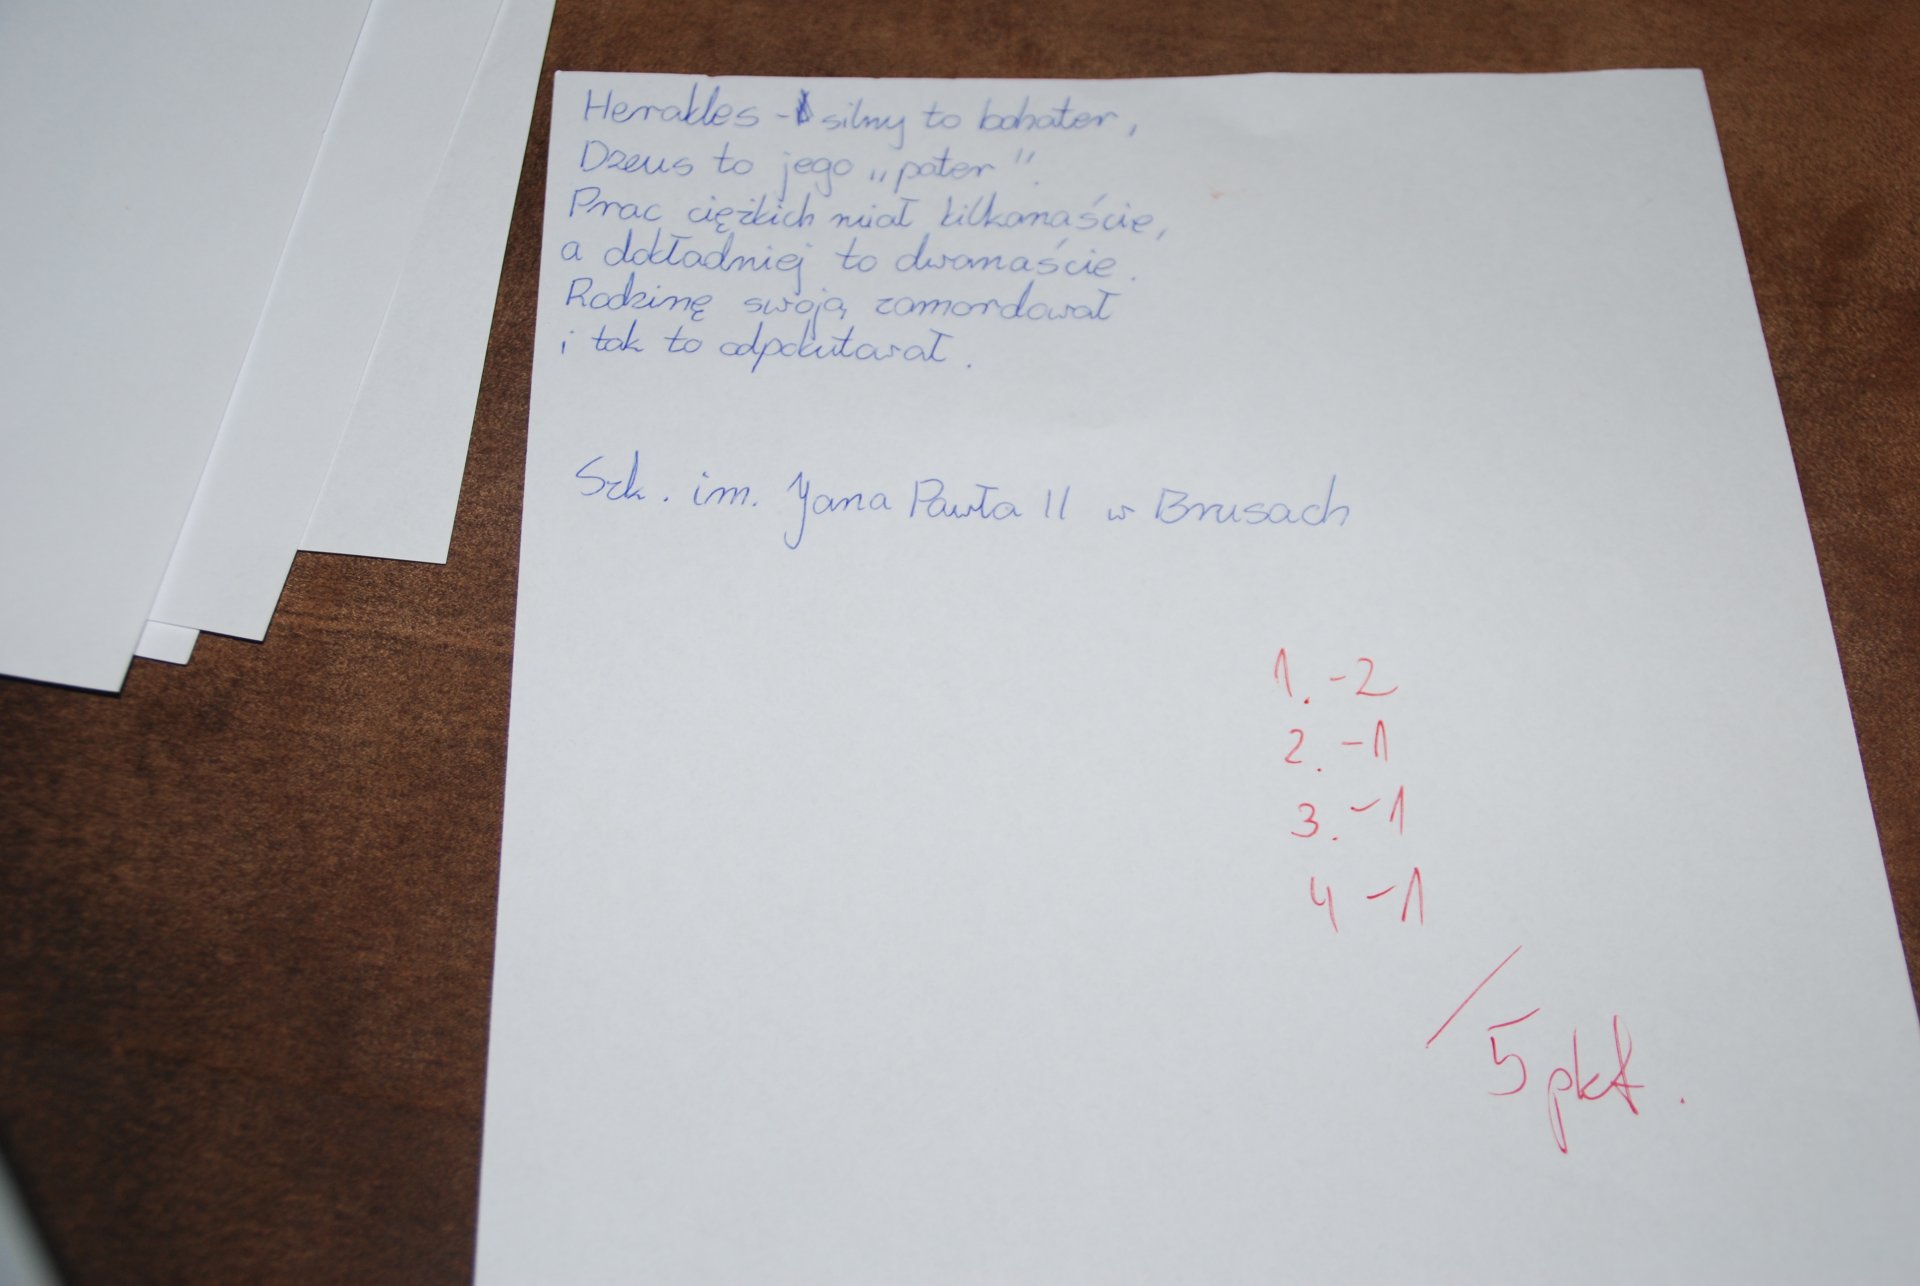 Herakles - silny to bohater,
Dzeus to jego „pater”.
Prac ciężkich miał kilkanaście,
a dokładniej to dwanaście.
Rodzinę swoją zamordował
i tak to odpokutował.
Szk. im. Jana Pawła II w Brusach
1. -2
2. -1
3. -1
4 -1
/
5 pkt.